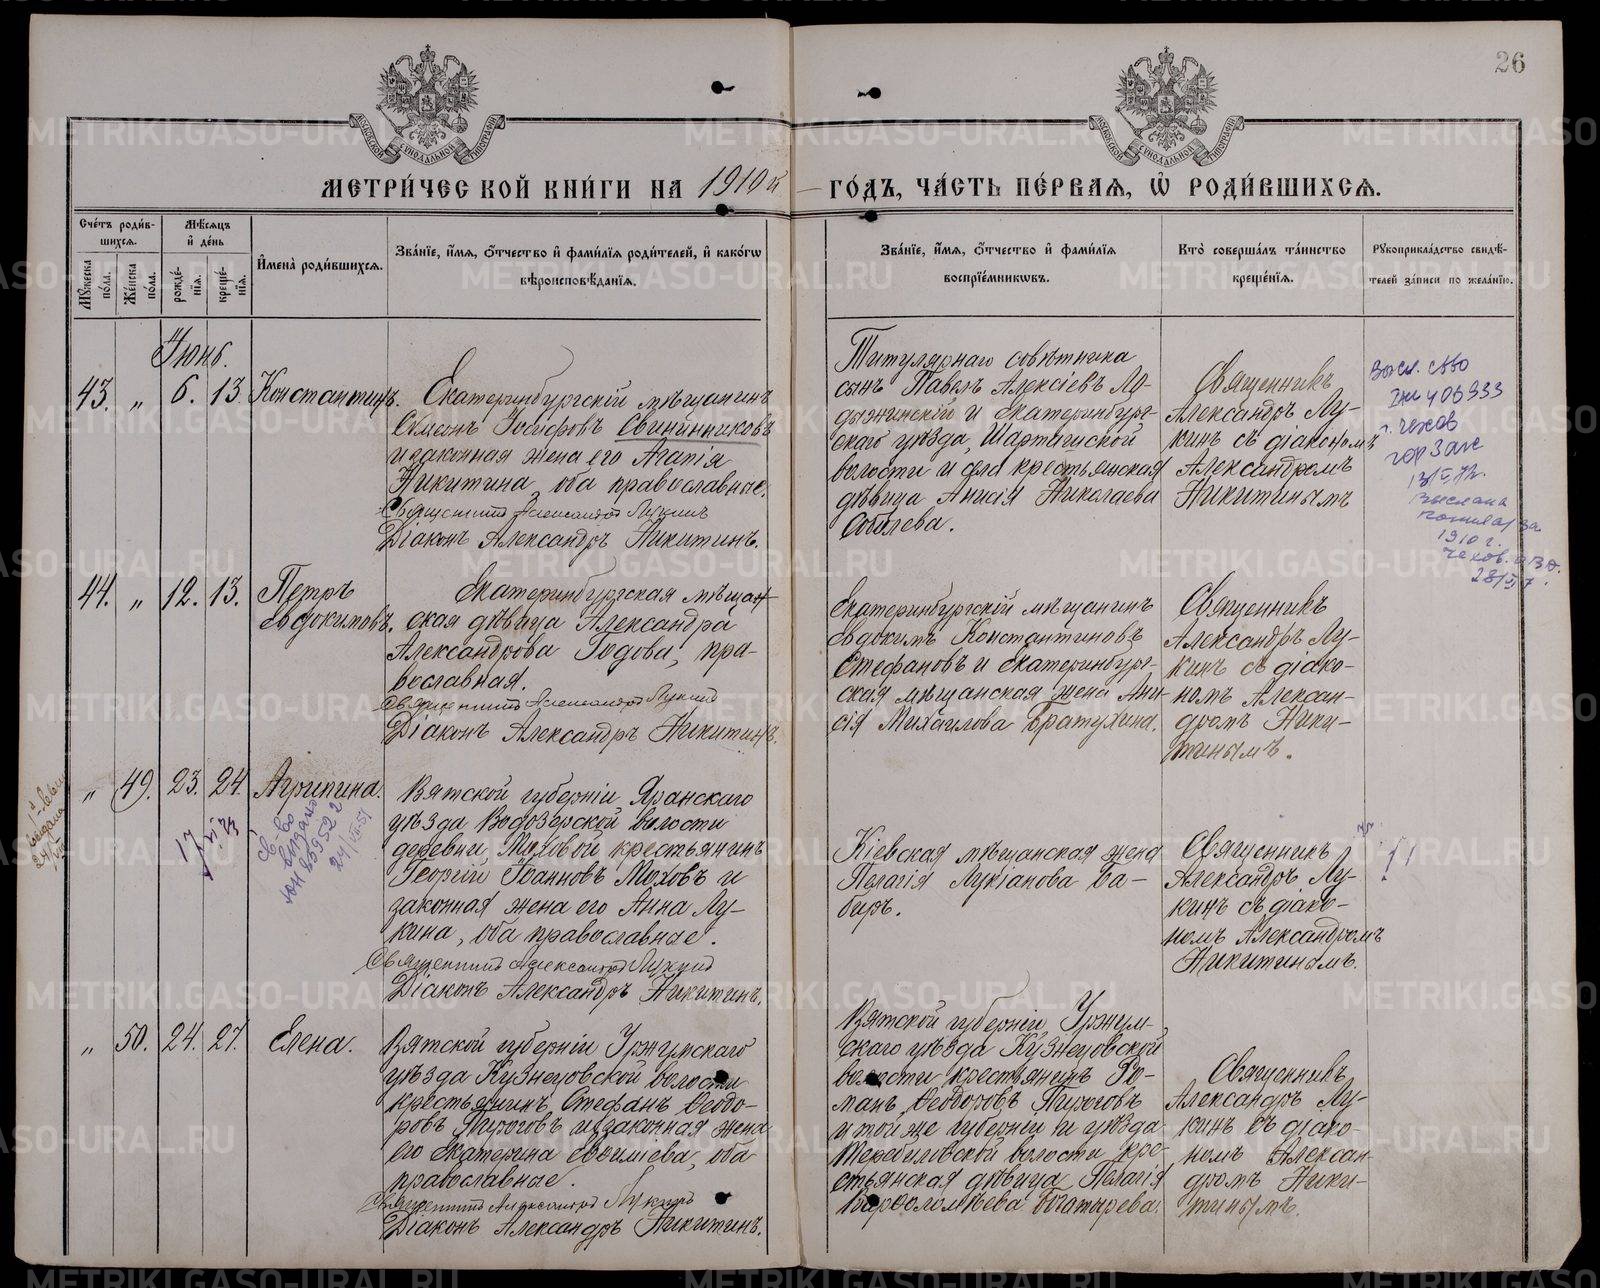 26
МЕТРИ́ЧЕСКОЙ КНИ́ГИ НА 1910й ГО́ДЪ, ЧА́СТЬ ПЕ́РВАЯ, Ѡ РОДИ́ВШИХСЯ.
Сче́тъ роди́в-
шихся.
Му́жеска по́ла.
Же́нска по́ла.
Мѣ́сяцъ
и де́нь
рожде́-
нія.
креще́-
нія.
Имена̀ роди́вшихся.
Зва́ніе, и́мя, о́тчество и фами́лія роди́телей, и како́гѡ
вѣроисповѣ́данія.
Зва́ніе, и́мя, о́тчество и фами́лія
воспріе́мникѡвъ.
Кто̀ соверша́лъ та́инство
креще́нія.
Рукоприкла́дство свидѣ́-
телей за́писи по жела́нію.
Іюнь.
43. „ 6. 13. Константинъ.
Екатеринбургскій мѣщанинъ
Симеонъ Іосифовъ Свининниковъ
и законная жена его Агапія
Никитина, оба православные.
Священникъ Александръ Лукинъ
Діаконъ Александръ Никитинъ.
Титулярнаго совѣтника
сынъ Павелъ Алексіевъ Ло-
дыжинскій и Екатеринбург-
скаго уѣзда, Шарташской
волости и села крестьянская
дѣвица Анисія Николаева
Соболева.
Священникъ
Александръ Лу-
кинъ съ діакономъ
Александромъ
Никитинымъ
Высл. св-во
г. Чехов
горЗагс
Выслана
1910 г.
44. „ 12. 13. Петръ
Евдокимовъ.
Екатеринбургская мѣщан-
ская дѣвица Александра
Александрова Годова, пра-
вославная.
Священникъ Александръ Лукинъ
Діаконъ Александръ Никитинъ.
Екатеринбургскій мѣщанинъ
Евдокимъ Константиновъ
Стефановъ и Екатеринбург-
ская мѣщанская жена Ани-
сія Михаилова Братухина.
Священникъ
Александръ Лу-
кинъ съ діако-
номъ Алексан-
дромъ Ники-
тинымъ.
„ 49. 23. 24. Агрипина.
св-во
выдано
Вятской губерніи, Яранскаго
уѣзда Водозерской волости
деревни, Моховой крестьянинъ
Георгій Іоанновъ Моховъ и
законная жена его Анна Лу-
кина, оба православные.
Священникъ Александръ Лукинъ
Діаконъ Александръ Никитинъ.
Кіевская мѣщанская жена
Пелагія Лукіанова Ба-
биръ.
Священникъ
Александръ Лу-
кинъ съ діако-
номъ Александромъ
Никитинымъ.
„ 50. 24. 27. Елена.
Вятской губерніи Уржумскаго
уѣзда Кузнецовской волости
крестьянинъ Стефанъ Ѳеодо-
ровъ Пироговъ и законная жена
его Екатерина Евѳиміева, оба
православные.
Священникъ Александръ Лукинъ
Діаконъ Александръ Никитинъ.
Вятской губерніи, Уржум-
скаго уѣзда Кузнецовской
волости крестьянинъ Ро-
манъ Ѳеодоровъ Пироговъ
и той же губерніи и уѣзда
Теребиловской волости кре-
стьянская дѣвица Пелагія
Варѳоломѣева Богатырева.
Священникъ
Александръ Лу-
кинъ съ діако-
номъ Алексан-
дромъ Ники-
тинымъ.
METRIKI.GASO-URAL.RU